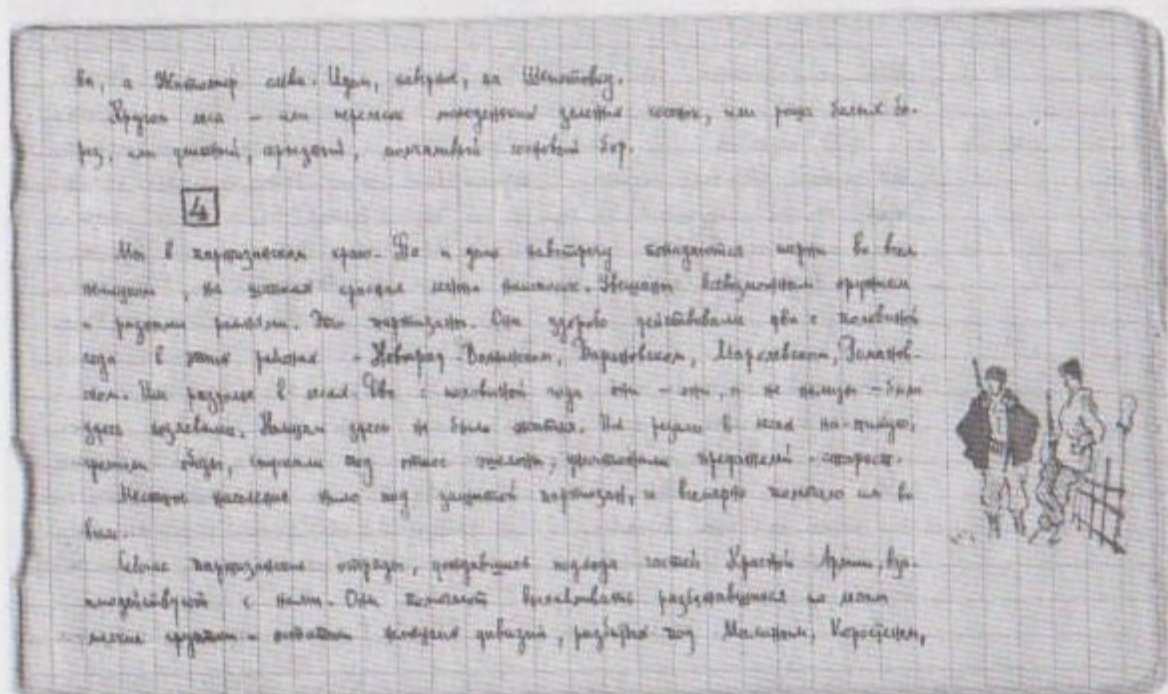 ва, а Житомир слева. Идем, наверно, на Шепетовку.
Кругом леса – или перелески молоденьких зеленых сосенок, или роща белых бе-
рез, или дремучий, молчаливый сосновый бор.
4
Мы в партизанском краю. То и дело навстречу попадаются парни во всем
немецком, на шапках красная лента наискосок. Увешаны всевозможным оружием
и разными ремнями. Это партизаны. Они здорово действовали два с половиной
года в этих районах – Новоград-Волынском, Барановском,
Им раздолье в лесах. Два с половиной года они – они, а не немцы – были
здесь хозяевами. Немцам здесь не было житья. Их резали в лесах
громили обозы, спускали под откос эшелоны, предателей – старост.
Местное население жило под защитой партизан, и всемерно помогало им во
всем.
Сейчас партизанские отряды, дождавшись подхода частей Красной Армии, вза-
имодействуют с ними. Они помогают вылавливать разбежавшиеся по лесам
мелкие группки – остатки немецких дивизий, разбитых под Малином, Коростенем,